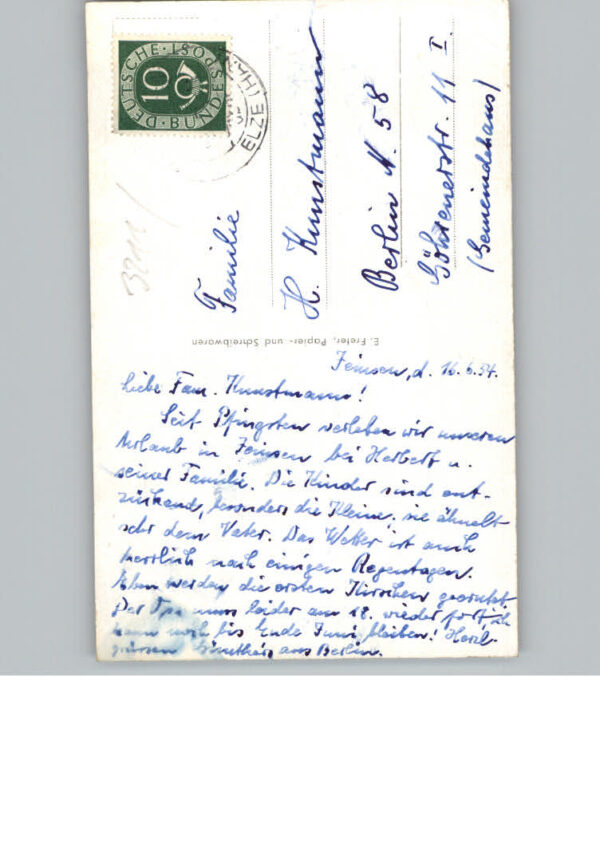 DEUTSCHE · BUNDESPOST
10
ELZE (HAN
Familie
H. Kunstmann
Berlin N. 58
Göhrenerstr. 11 I.
(Gemeindehaus)
E. Freter, Papier- und Schreibwaren
Jeinsen, d. 16.6.54.
Liebe Fam. Kunstmann!
Seit Pfingsten verleben wir unseren
Urlaub in Jeinsen bei Herbert u.
seiner Familie. Die Kinder sind ent-
zückend, besonders die Kleine, sie ähnelt
sehr dem Vater. Das Wetter ist auch
herrlich nach einigen Regentagen.
Eben werden die ersten Kirschen gepflückt.
Der Opa muss leider am 18. wieder fort, ich
kann noch bis Ende Juni bleiben! Herzl.
grüssen aus Berlin.